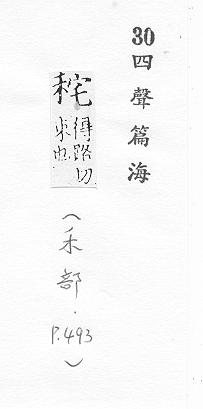 30
四聲篇海
得路切
束也
(禾部．P.493)